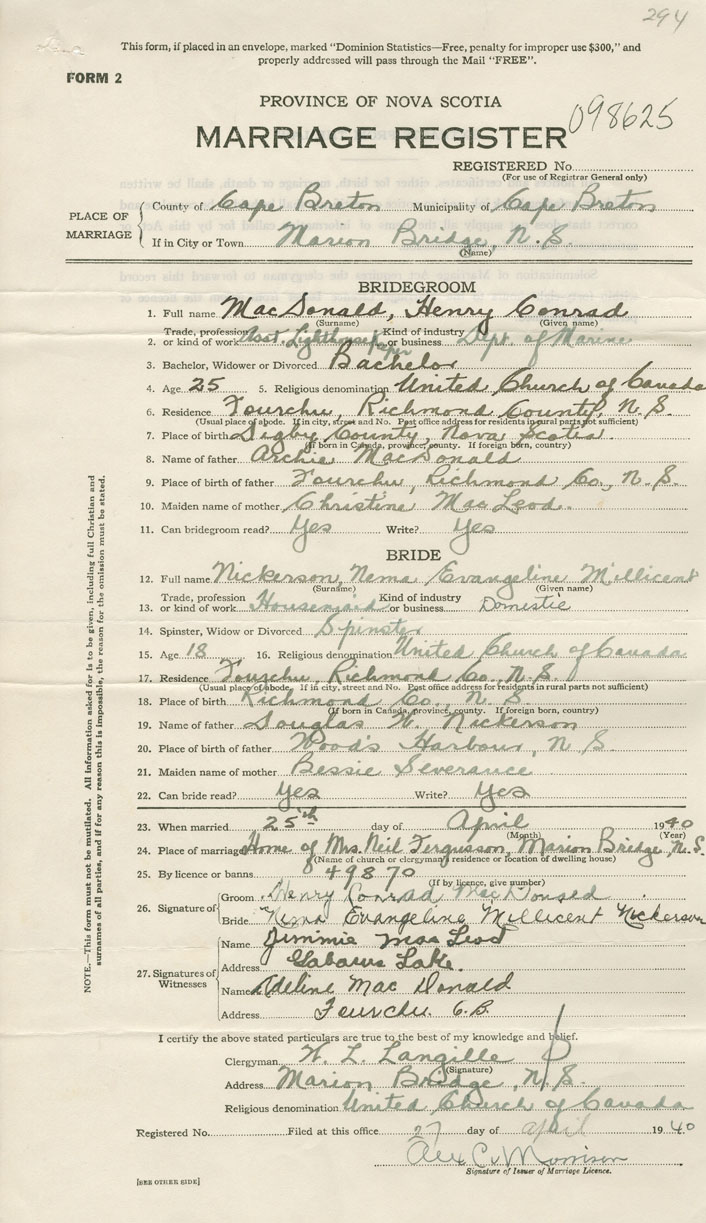 294
This form, if placed in an envelope, marked "Dominion Statistics—Free, penalty for improper use $300," and
properly addressed will pass through the Mail "FREE".
FORM 2
PROVINCE OF NOVA SCOTIA
098625
MARRIAGE REGISTER
REGISTERED No.
(For use of Registrar General only)
PLACE OF MARRIAGE
County of Cape Breton Municipality of Cape Breton
If in City or Town Marion Bridge, N.S.
(Name)
BRIDEGROOM
1. Full name MacDonald, Henry Conrad
(Surname) (Given name)
Trade, profession Kind of industry
2. or kind of work Asst. Lighthousekeeper or business Dept. of Marine
3. Bachelor, Widower or Divorced Bachelor
4. Age 25 5. Religious denomination United Church of Canada
6. Residence Fourchu, Richmond County, N.S.
(Usual place of abode. If in city, street and No. Post office address for residents in rural parts not sufficient)
7. Place of birth Digby County, Nova Scotia.
(If born in Canada, province, county. If foreign born, country)
8. Name of father Archie MacDonald
9. Place of birth of father Fourchu, Richmond Co., N.S.
10. Maiden name of mother Christine MacLeod.
11. Can bridegroom read? Yes Write? Yes
BRIDE
12. Full name Nickerson, Nema Evangeline Millicent
(Surname) (Given name)
Trade, profession Kind of industry
13. or kind of work Housemaid or business Domestic
14. Spinster, Widow or Divorced Spinster
15. Age 18 16. Religious denomination United Church of Canada
17. Residence Fourchu, Richmond Co., N.S.
(Usual place of abode. If in city, street and No. Post office address for residents in rural parts not sufficient)
18. Place of birth Richmond Co., N.S.
(If born in Canada, province, county. If foreign born, country)
19. Name of father Douglas W. Nickerson
20. Place of birth of father Wood's Harbour, N.S.
21. Maiden name of mother Bessie Severance
22. Can bride read? Yes Write? Yes
23. When married 25th day of April 1940
(Month) (Year)
24. Place of marriage Home of Mrs. Neil Fergusson, Marion Bridge, N.S.
(Name of church or clergyman's residence or location of dwelling house)
25. By licence or banns 49870
(If by licence, give number)
26. Signature of
Groom Henry Conrad MacDonald
Bride Nema Evangeline Millicent Nickerson
27. Signatures of Witnesses
Name Jimmie MacLeod
Address Gabarus Lake.
Name Adeline Mac Donald
Address Fourchu. C.B.
I certify the above stated particulars are true to the best of my knowledge and belief.
Clergyman W. L. Langille
(Signature)
Address Marion Bridge, N.S.
Religious denomination United Church of Canada
Registered No. Filed at this office 27 day of April 1940
Alex C. Morrison
Signature of Issuer of Marriage Licence.
[SEE OTHER SIDE]
NOTE.—This form must not be mutilated. All information asked for is to be given, including full Christian and
surnames of all parties, and if for any reason this is impossible, the reason for the omission must be stated.